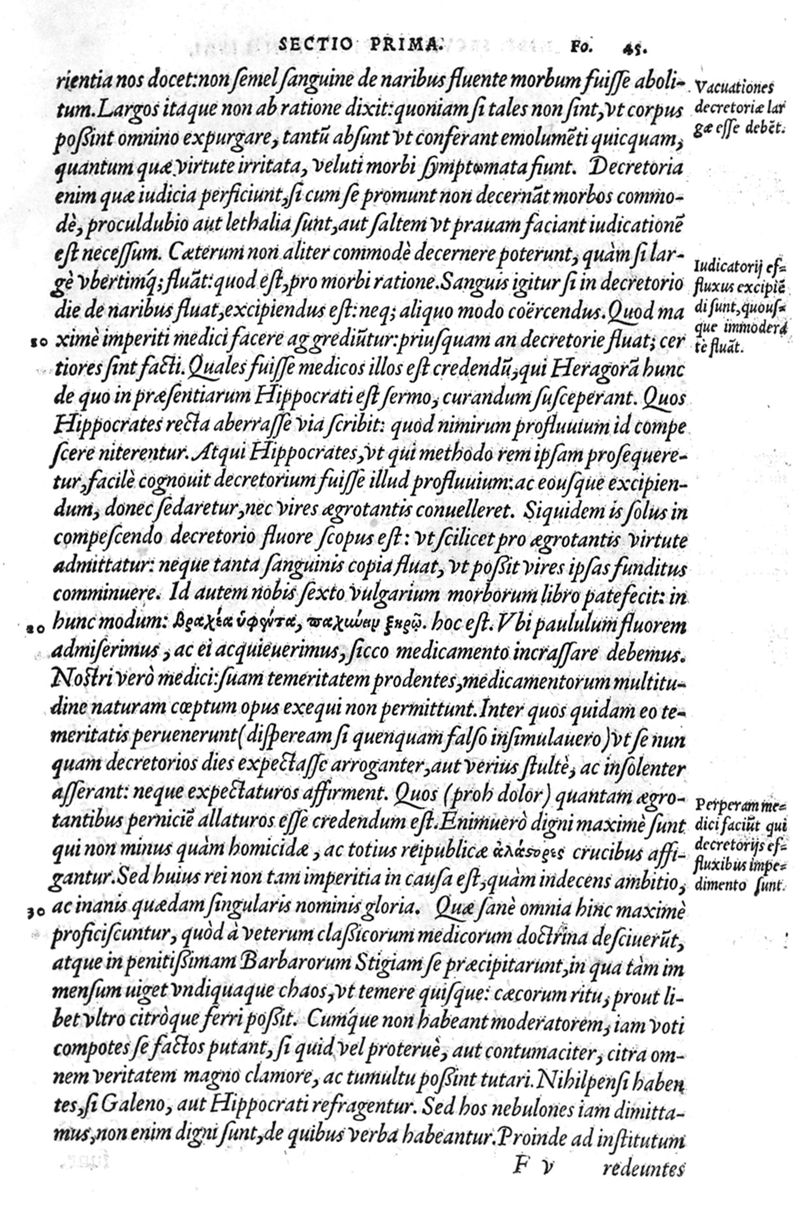 SECTIO PRIMA. Fo. 45.
rientia nos docet: non ſemel ſanguine de naribus fluente morbum fuiſſe aboli-
tum. Largos itaque non ab ratione dixit: quoniam ſi tales non ſint, vt corpus
poßint omnino expurgare, tantũ abſunt vt conferant emolumẽti quicquam,
quantum quæ virtute irritata, veluti morbi ſymptomata fiunt. Decretoria
enim quæ iudicia perficiunt, ſi cum ſe promunt non decernãt morbos commo-
dè, proculdubio aut lethalia ſunt, aut ſaltem vt prauam faciant iudicationẽ
eſt neceſſum. Cæterum non aliter commodè decernere poterunt, quàm ſi lar-
gè vbertimq́; fluãt: quod eſt, pro morbi ratione. Sanguis igitur ſi in decretorio
die de naribus fluat, excipiendus eſt: neq; aliquo modo coërcendus. Quod ma
ximè imperiti medici facere aggrediũtur: priuſquam an decretorie fluat; cer
tiores ſint facti. Quales fuiſſe medicos illos eſt credendũ, qui Heragorã hunc
de quo in præſentiarum Hippocrati eſt ſermo, curandum ſuſceperant. Quos
Hippocrates recta aberraſſe via ſcribit: quòd nimirum profluuium id compe
ſcere niterentur. Atqui Hippocrates, vt qui methodo rem ipſam proſequere-
tur, facilè cognouit decretorium fuiſſe illud profluuium: ac eouſque excipien-
dum, donec ſedaretur, nec vires ægrotantis conuelleret. Siquidem is ſolus in
compeſcendo decretorio fluore ſcopus eſt: vt ſcilicet pro ægrotantis virtute
admittatur: neque tanta ſanguinis copia fluat, vt poßit vires ipſas funditus
comminuere. Id autem nobis ſexto vulgarium morborum libro patefecit: in
hunc modum: βραχέα ὑφέντα, παχύνειν ξηρῷ. hoc eſt. Vbi paululum fluorem
admiſerimus, ac ei acquieuerimus, ſicco medicamento incraſſare debemus.
Noſtri verò medici: ſuam temeritatem prodentes, medicamentorum multitu-
dine naturam cœptum opus exequi non permittunt. Inter quos quidam eo te-
meritatis peruenerunt (diſpeream ſi quenquam falſo inſimulauero) vt ſe nun
quam decretorios dies expectaſſe arroganter, aut verius ſtultè, ac inſolenter
aſſerant: neque expectaturos affirment. Quos (proh dolor) quantam ægro-
tantibus perniciẽ allaturos eſſe credendum eſt. Enimuerò digni maximè ſunt
qui non minus quàm homicidæ, ac totius reipublicæ ἀλάστορες crucibus affi-
gantur. Sed huius rei non tam imperitia in cauſa eſt, quàm indecens ambitio,
ac inanis quædam ſingularis nominis gloria. Quæ ſanè omnia hinc maximè
proficiſcuntur, quòd à veterum claßicorum medicorum doctrina deſciuerũt,
atque in penitißimam Barbarorum Stigiam ſe præcipitarunt, in qua tàm im
menſum uiget vndiquaque chaos, vt temere quiſque: cæcorum ritu, prout li-
bet vltro citróque ferri poßit. Cumq́ue non habeant moderatorem, iam voti
compotes ſe factos putant, ſi quid vel proteruè, aut contumaciter, citra om-
nem veritatem magno clamore, ac tumultu poßint tutari. Nihil penſi haben
tes, ſi Galeno, aut Hippocrati refragentur. Sed hos nebulones iam dimitta-
mus, non enim digni ſunt, de quibus verba habeantur. Proinde ad inſtitutum
F v redeuntes
Vacuationes
decretoriæ lar
gæ eſſe debẽt.
Iudicatorij ef-
fluxus excipiẽ
di ſunt, quouſ-
que immoderá
tè fluãt.
Perperam me-
dici faciũt qui
decretorijs ef-
fluxibus impe-
dimento ſunt.
10
20
30